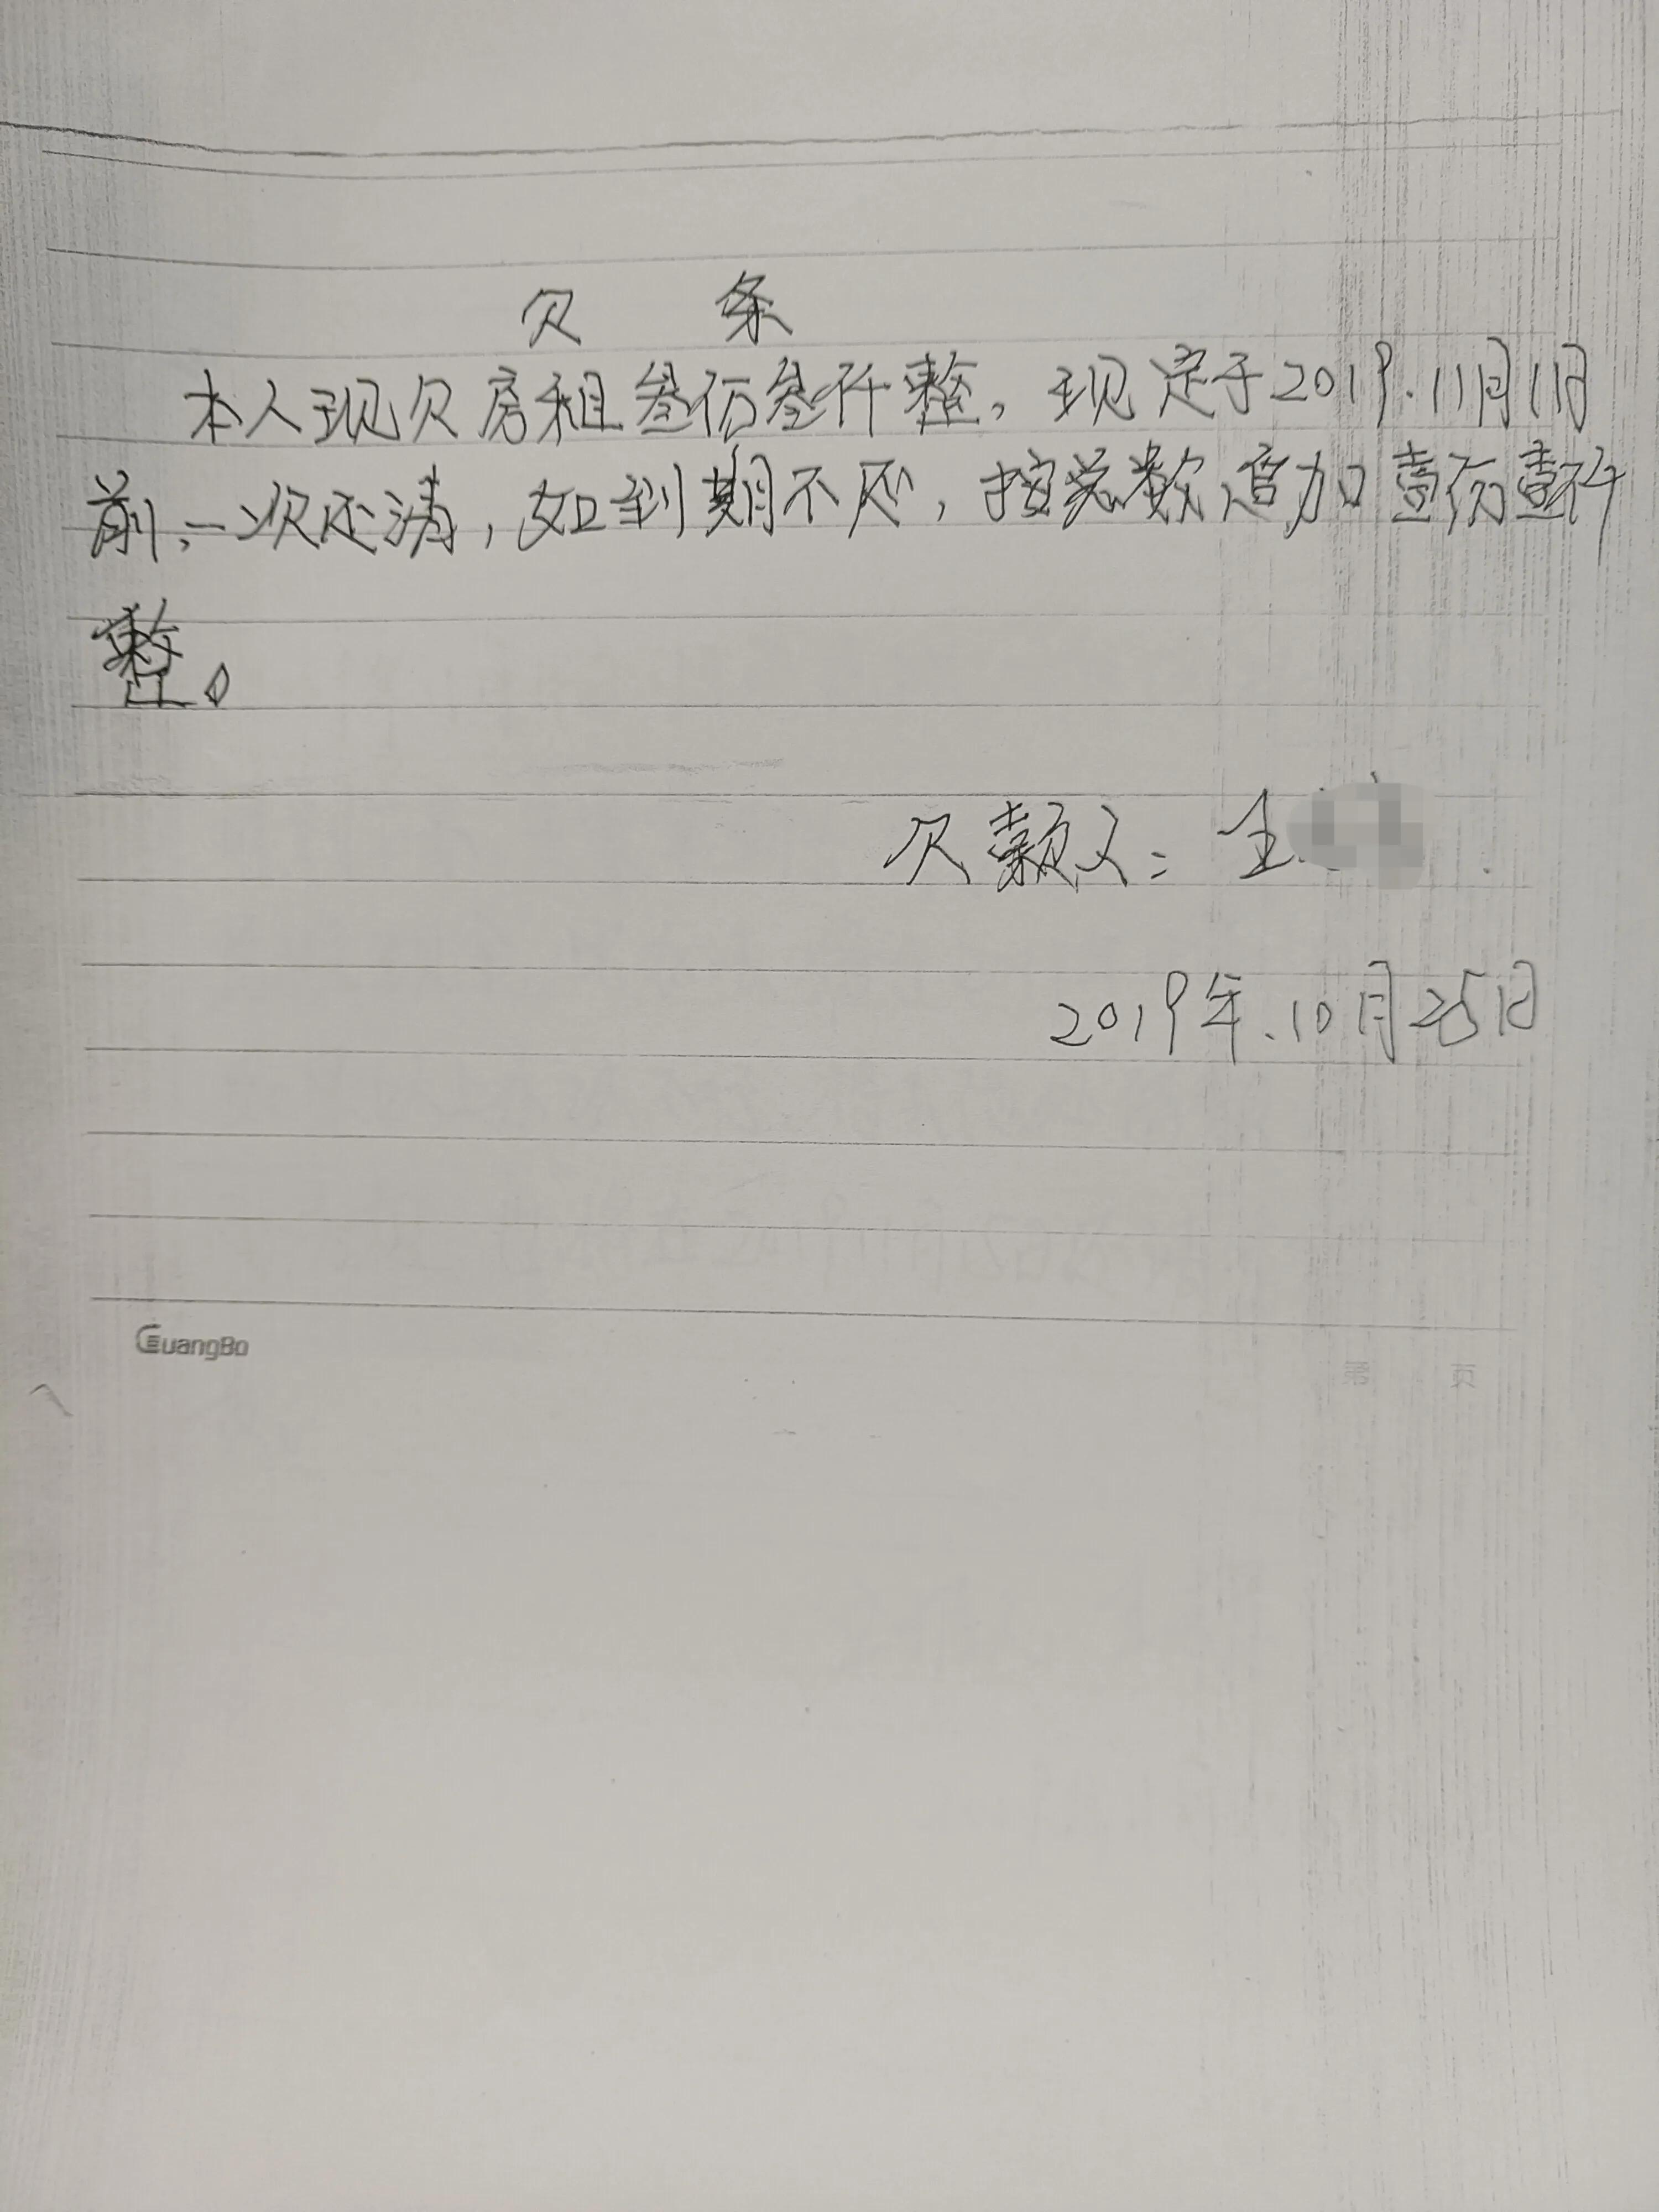 欠 条
本人现欠房租叁佰叁仟整，现定于2019.11月1日
前，一次还清，如到期不还，按总数追加壹佰壹仟
整。
欠款人：
2019年.10月25日
GuangBo
第 页